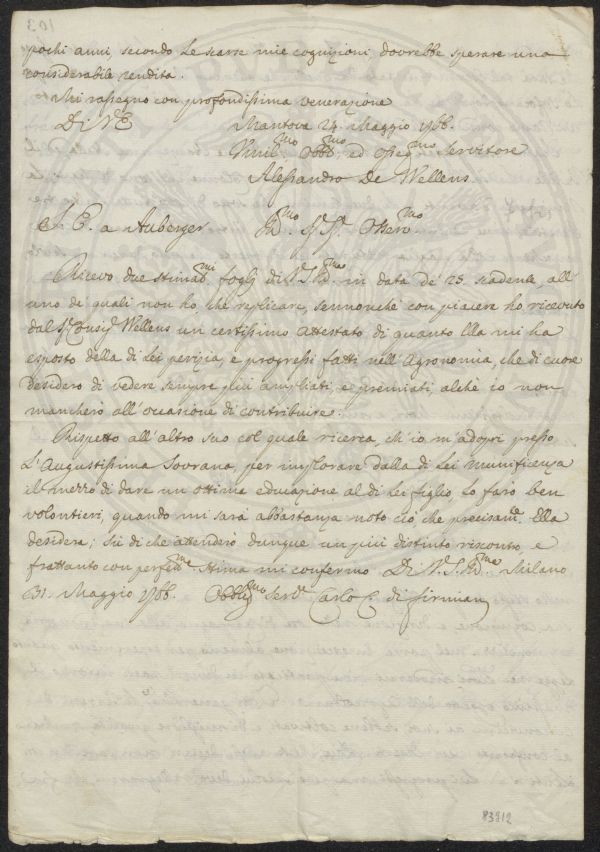 103
pochi anni, secondo le scarse mie cognizioni, dovrebbe sperare una
considerabile rendita.
Mi rassegno con profondissima venerazione
Di V.E. Mantova 24. Maggio 1766.
Umil.mo Obb.mo, ed Osseq.mo Servitore
Alessandro De Wellens
S. E. a Auberger Ill.mo Sig.r Sig.r Osser.mo
Ricevo due stimat.mi foglj di V.S. Ill.ma in data de' 25. scadente, all'
uno de' quali non ho che replicare, sennonchè con piacere ho ricevuto
dal S.r Consig.r Wellens un certissimo attestato di quanto Ella mi ha
esposto della di Lei perizia, e progressi fatti nell'Agronomia, che di cuore
desidero di vedere sempre più ampliati, e premiati, alchè io non
mancherò all'occasione di contribuire.
Rispetto all'altro suo col quale ricerca, ch'io m'adopri presso
L'Augustissima Sovrana, per implorare dalla di Lei munificenza
il mezzo di dare un ottima educazione al di Lei figlio, Lo farò ben
volontieri, quando mi sarà abbastanza noto ciò, che precisam.e Ella
desidera; Su di che attenderò dunque un più distinto riscontro, e
frattanto con perfett.ma stima mi confermo Di V.S. Ill.ma Milano
31. Maggio 1766. Obblig.mo Serv.e Carlo C. di Firmian
83912